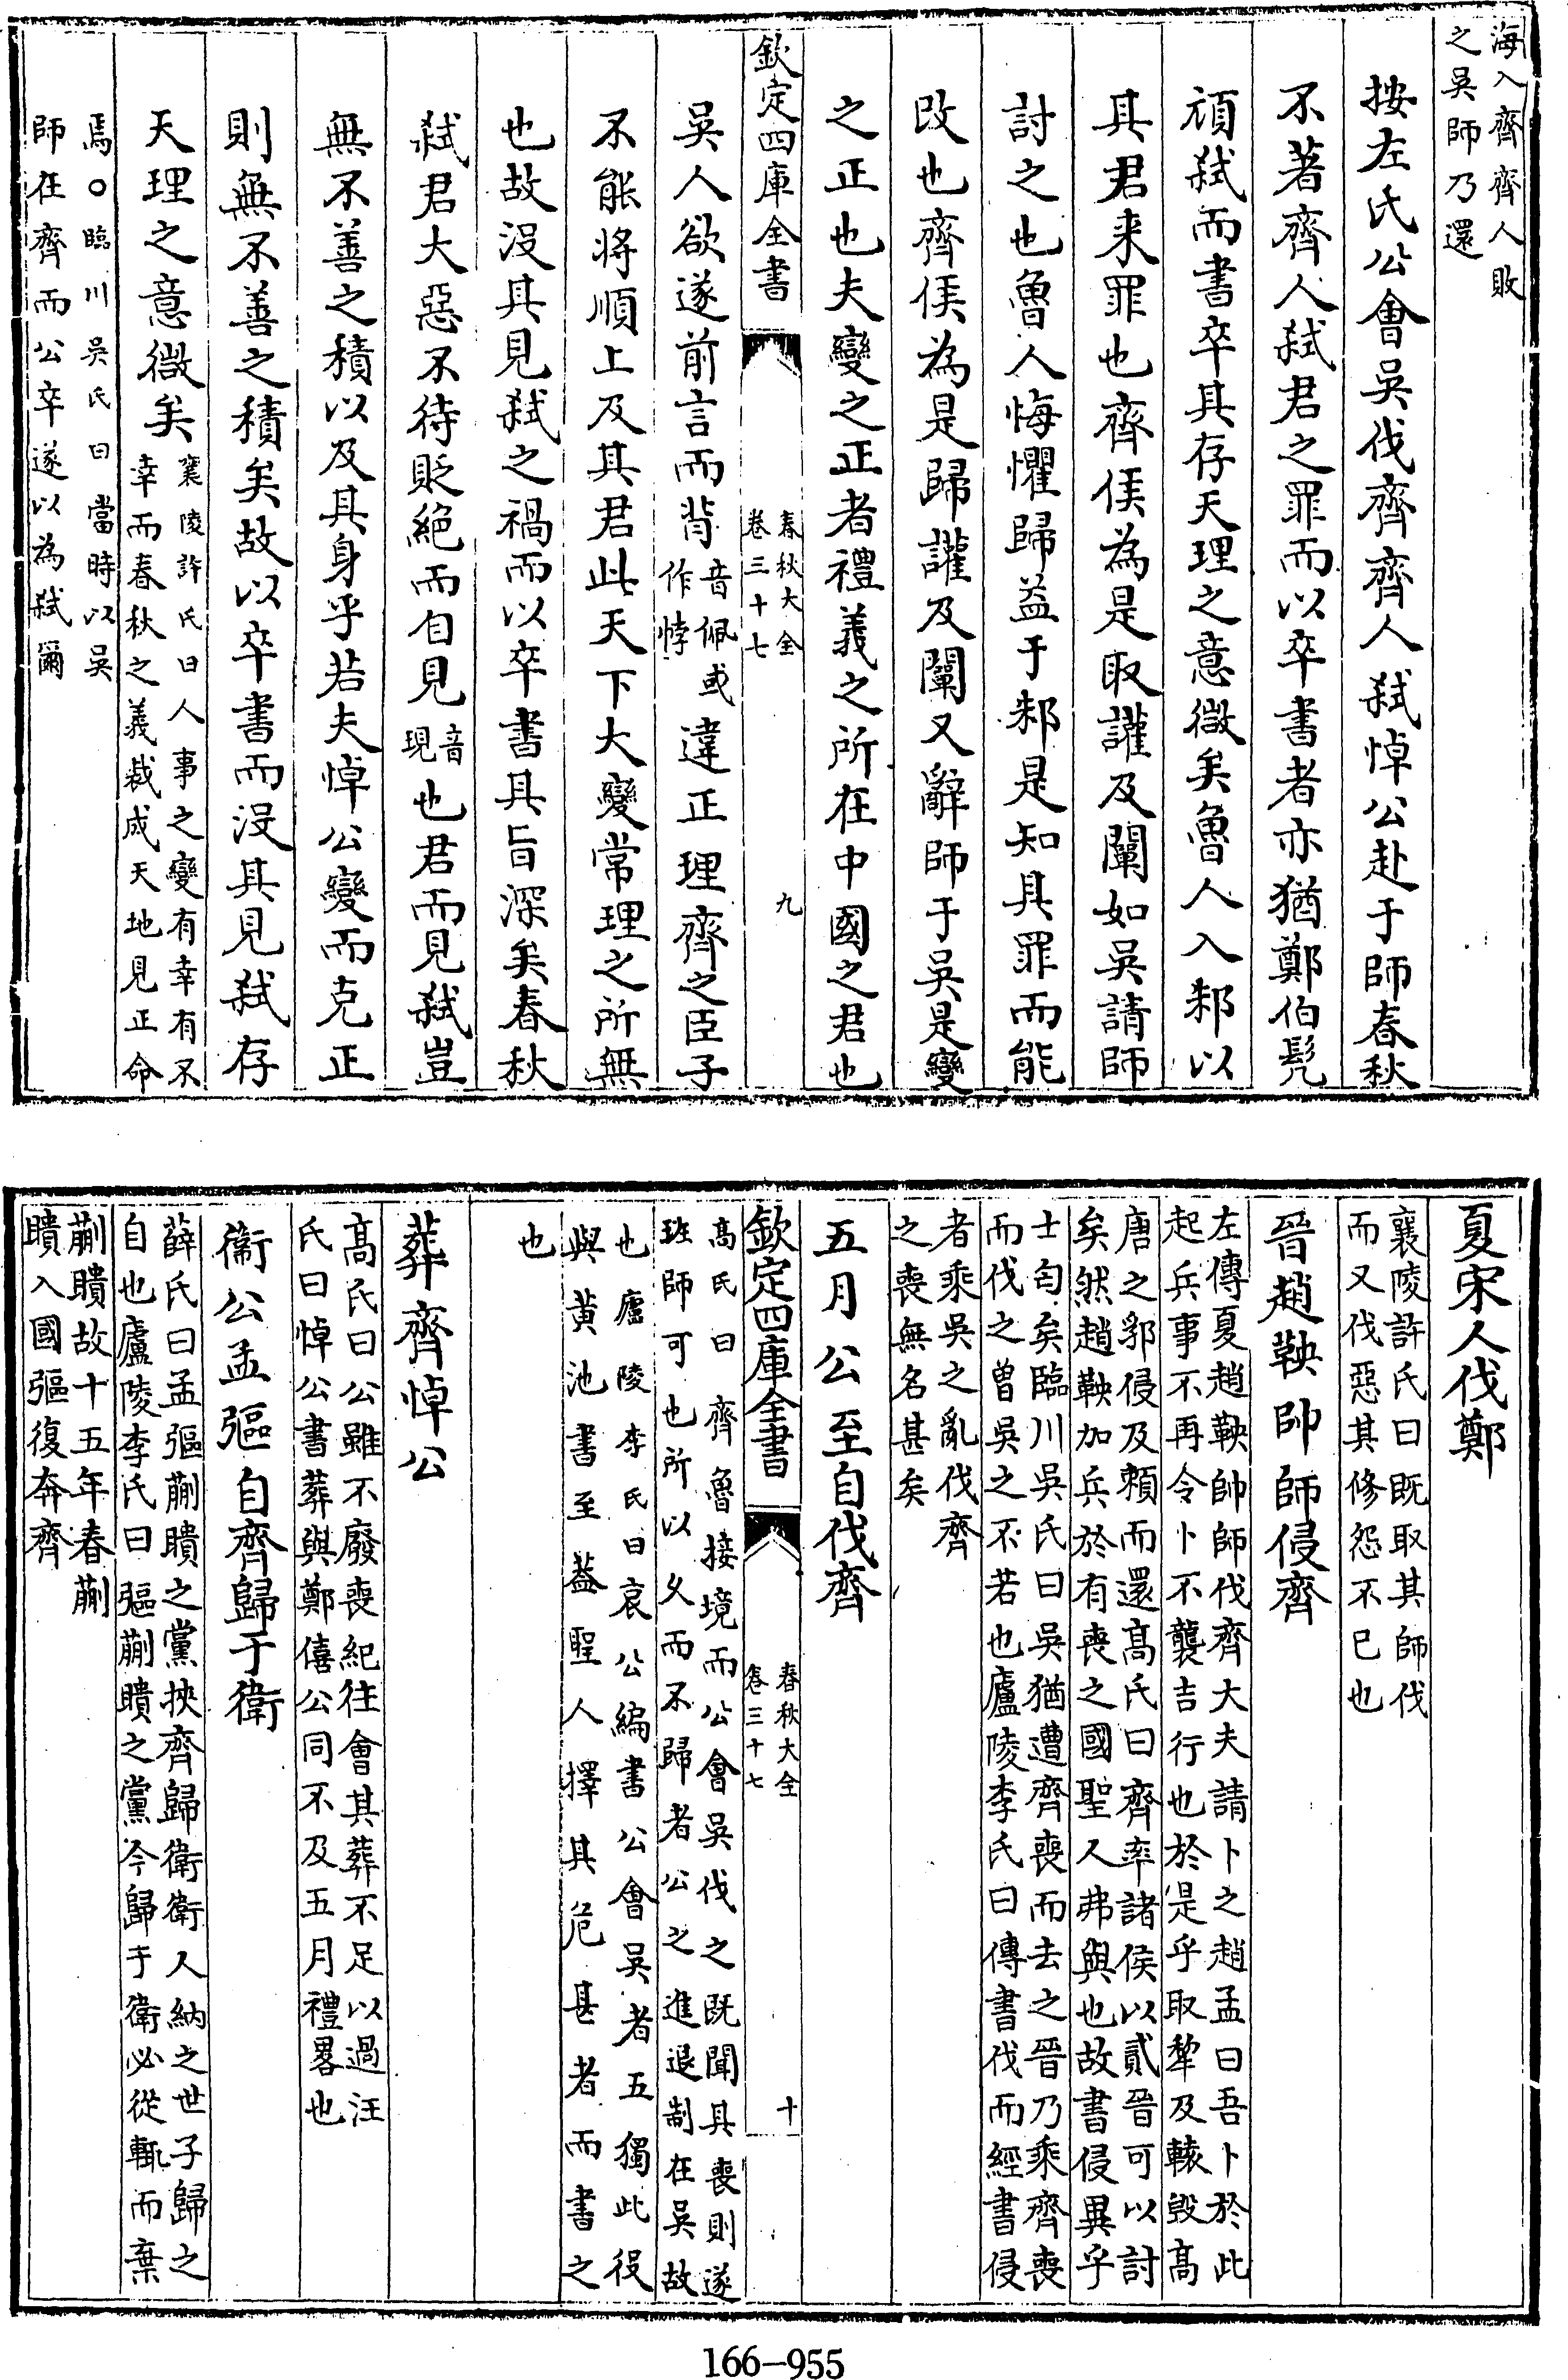 海入齊齊人敗
之吳師乃還
按左氏公會吳伐齊齊人弑悼公赴于師春秋
不著齊人弑君之罪而以卒書者亦猶鄭伯髠
頑弑而書卒其存天理之意微矣魯人入邾以
其君來罪也齊侯為是取讙及闡如吳請師
討之也魯人悔懼歸益于邾是知其罪而能
改也齊侯為是歸讙及闡又辭師于吳是變
之正也夫變之正者禮義之所在中國之君也
欽定四庫全書
春秋大全
卷三十七
九
吳人欲遂前言而背
音佩或
作悖
違正理齊之臣子
不能将順上及其君此天下大變常理之所無
也故沒其見弑之禍而以卒書其旨深矣春秋
弑君大惡不待貶絕而自見
音
現
也君而見弑豈
無不善之積以及其身乎若夫悼公變而克正
則無不善之積矣故以卒書而沒其見弑存
天理之意微矣
襄陵許氏曰人事之變有幸有不
幸而春秋之義裁成天地見正命
焉○臨川吳氏曰當時以吳
師在齊而公卒遂以為弑爾
夏宋人伐鄭
襄陵許氏曰既取其師伐
而又伐惡其修怨不已也
晉趙鞅帥師侵齊
左傳夏趙鞅帥師伐齊大夫請卜之趙孟曰吾卜於此
起兵事不再令卜不襲吉行也於是乎取犂及轅毀高
唐之郛侵及賴而還高氏曰齊率諸侯以貳晉可以討
矣然趙鞅加兵於有喪之國聖人弗與也故書侵異乎
士匄矣臨川吳氏曰吳猶遭齊喪而去之晉乃乘齊喪
而伐之曽吳之不若也廬陵李氏曰傳書伐而經書侵
者乘吳之亂伐齊
之喪無名甚矣
五月公至自伐齊
欽定四庫全書
春秋大全
卷三十七
十
高氏曰齊魯接境而公會吳伐之既聞其喪則遂
班師可也所以久而不歸者公之進退制在吳故
也廬陵李氏曰哀公編書公會吳者五獨此役
與黄池書至蓋聖人擇其危甚者而書之
也
葬齊悼公
高氏曰公雖不廢喪紀往會其葬不足以過汪
氏曰悼公書葬與鄭僖公同不及五月禮畧也
衞公孟彄自齊歸于衛
薛氏曰孟彄蒯聵之黨挾齊歸衛衛人納之世子歸之
自也廬陵李氏曰彄蒯聵之黨今歸于衛必從輒而棄
蒯聵故十五年春蒯
聵入國彄復奔齊
166-955